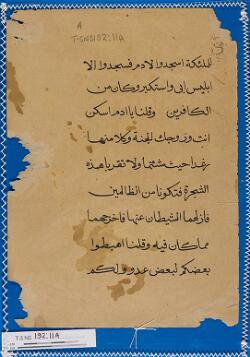 A
T-S NS 192.11A
للملئكة اسجدوا لادم فسجدوا الا
ابليس ابى واستكبر وكان من
الكافرين وقلنا يا ادم اسكن
انت وزوجك الجنة وكلا منها
رغدا حيث شئتما ولا تقربا هذه
الشجرة فتكونا من الظالمين
فازلهما الشيطان عنها فاخرجهما
مما كان فيه وقلنا اهبطوا
بعضكم لبعض عدو ولكم
T-S NS 192.11A